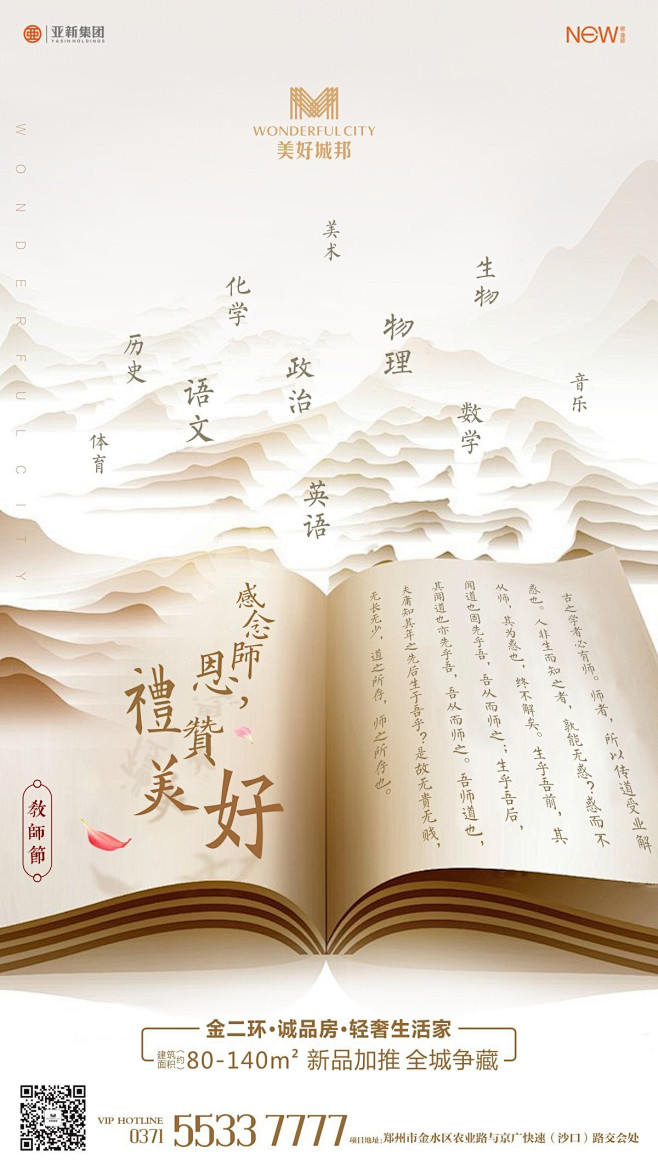 亚新集团
YASIN HOLDINGS
NEW
WONDERFUL CITY
美好城邦
WONDERFUL CITY
美术
生物
化学
物理
历史
政治
音乐
语文
数学
体育
英语
感念師恩，
禮贊美好
教師節
古之学者必有师。师者，所以传道受业解
惑也。人非生而知之者，孰能无惑？惑而不
从师，其为惑也，终不解矣。生乎吾前，其
闻道也固先乎吾，吾从而师之；生乎吾后，
其闻道也亦先乎吾，吾从而师之。吾师道也，
夫庸知其年之先后生于吾乎？是故无贵无贱，
无长无少，道之所存，师之所存也。
金二环·诚品房·轻奢生活家
建筑面积（约）80-140m² 新品加推 全城争藏
VIP HOTLINE
0371 5533 7777
项目地址：郑州市金水区农业路与京广快速（沙口）路交会处